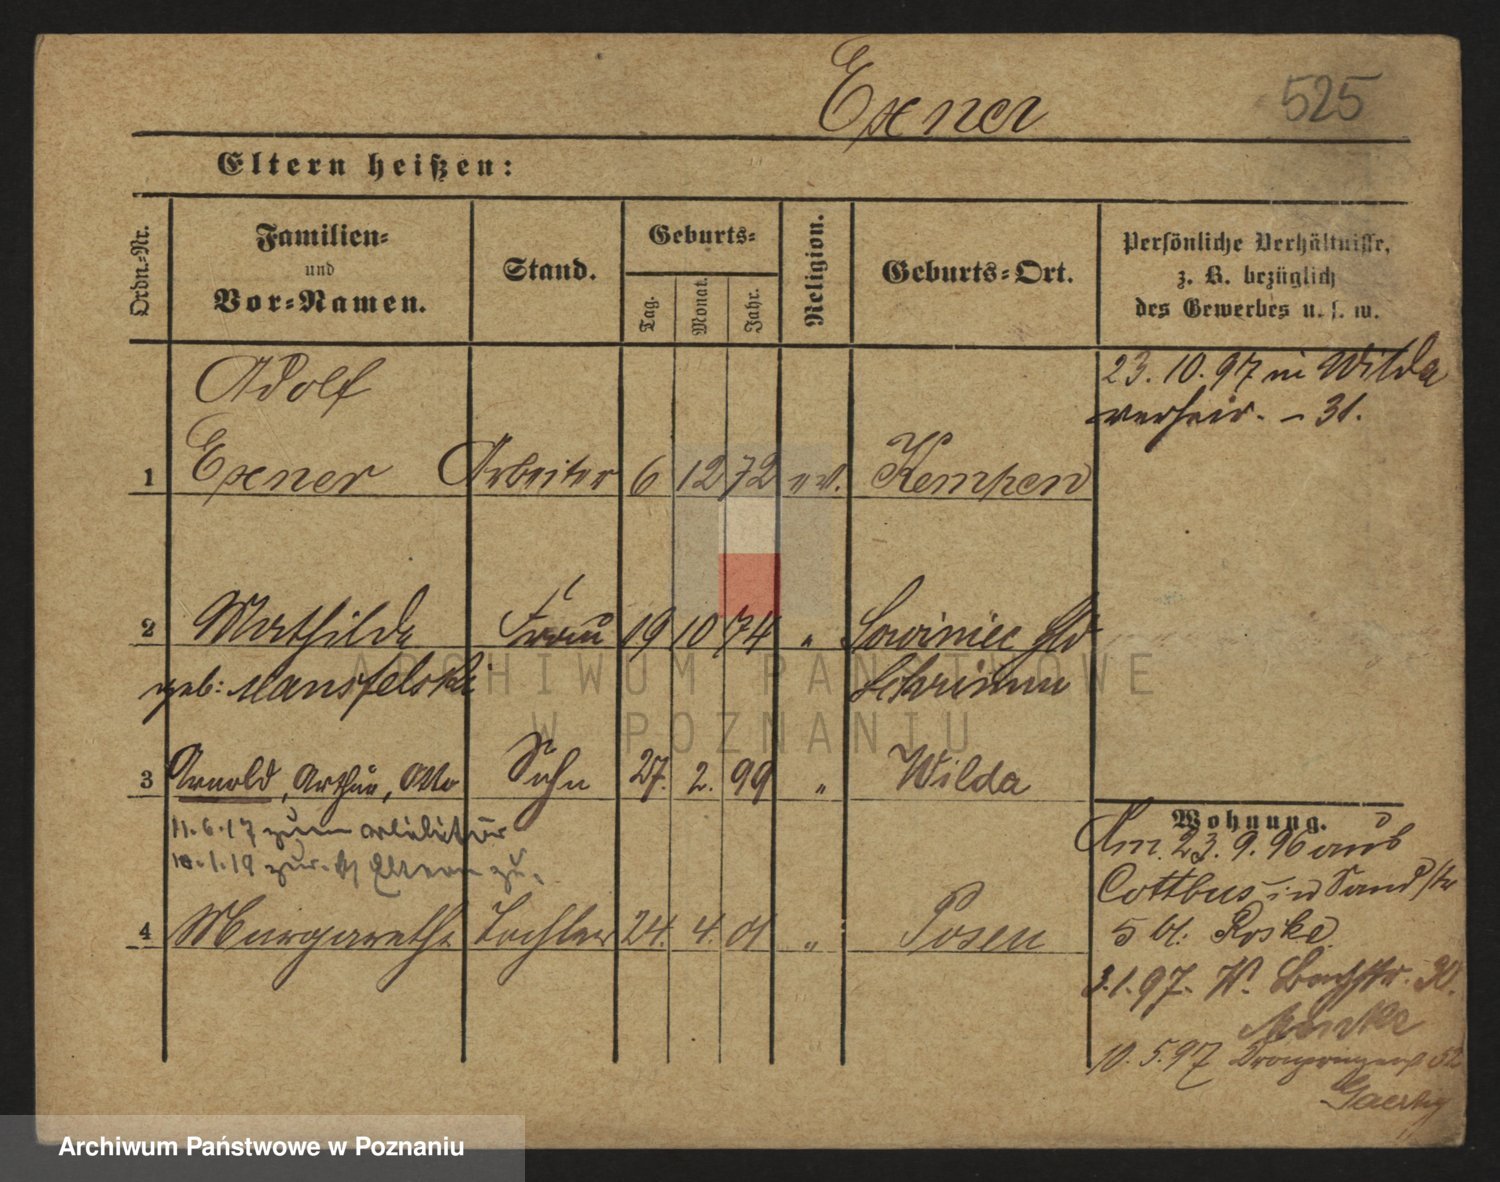 Exner 525
Eltern heißen:
Ordn.-Nr.
Familien-
und
Vor-Namen.
Stand.
Geburts-
Tag. Monat. Jahr.
Religion.
Geburts-Ort.
Persönliche Verhältnisse,
z. B. bezüglich
des Gewerbes u. s. w.
23. 10. 97 in Wilda
verheir. - 31.
Adolf
1 Exner Arbeiter 6 12 72 ev. Kempen
2 Mathilde Frau 19 10 74 " Sowiniec
geb: Mansfelski Schrimm
3 Arnold, Arthur, Otto Sohn 27. 2. 99 " Wilda
11. 6. 17 zum
10. 1. 19 zur. Eltern zu.
4 Margarethe Tochter 24. 4. 01 " Posen
Wohnung.
Am. 23. 9. 96 aus
Cottbus in Sandstr
5 bl: Roske
3. 1. 97. W. Bachstr. 30.
10. 5. 97 52
ARCHIWUM PAŃSTWOWE
W POZNANIU
Archiwum Państwowe w Poznaniu